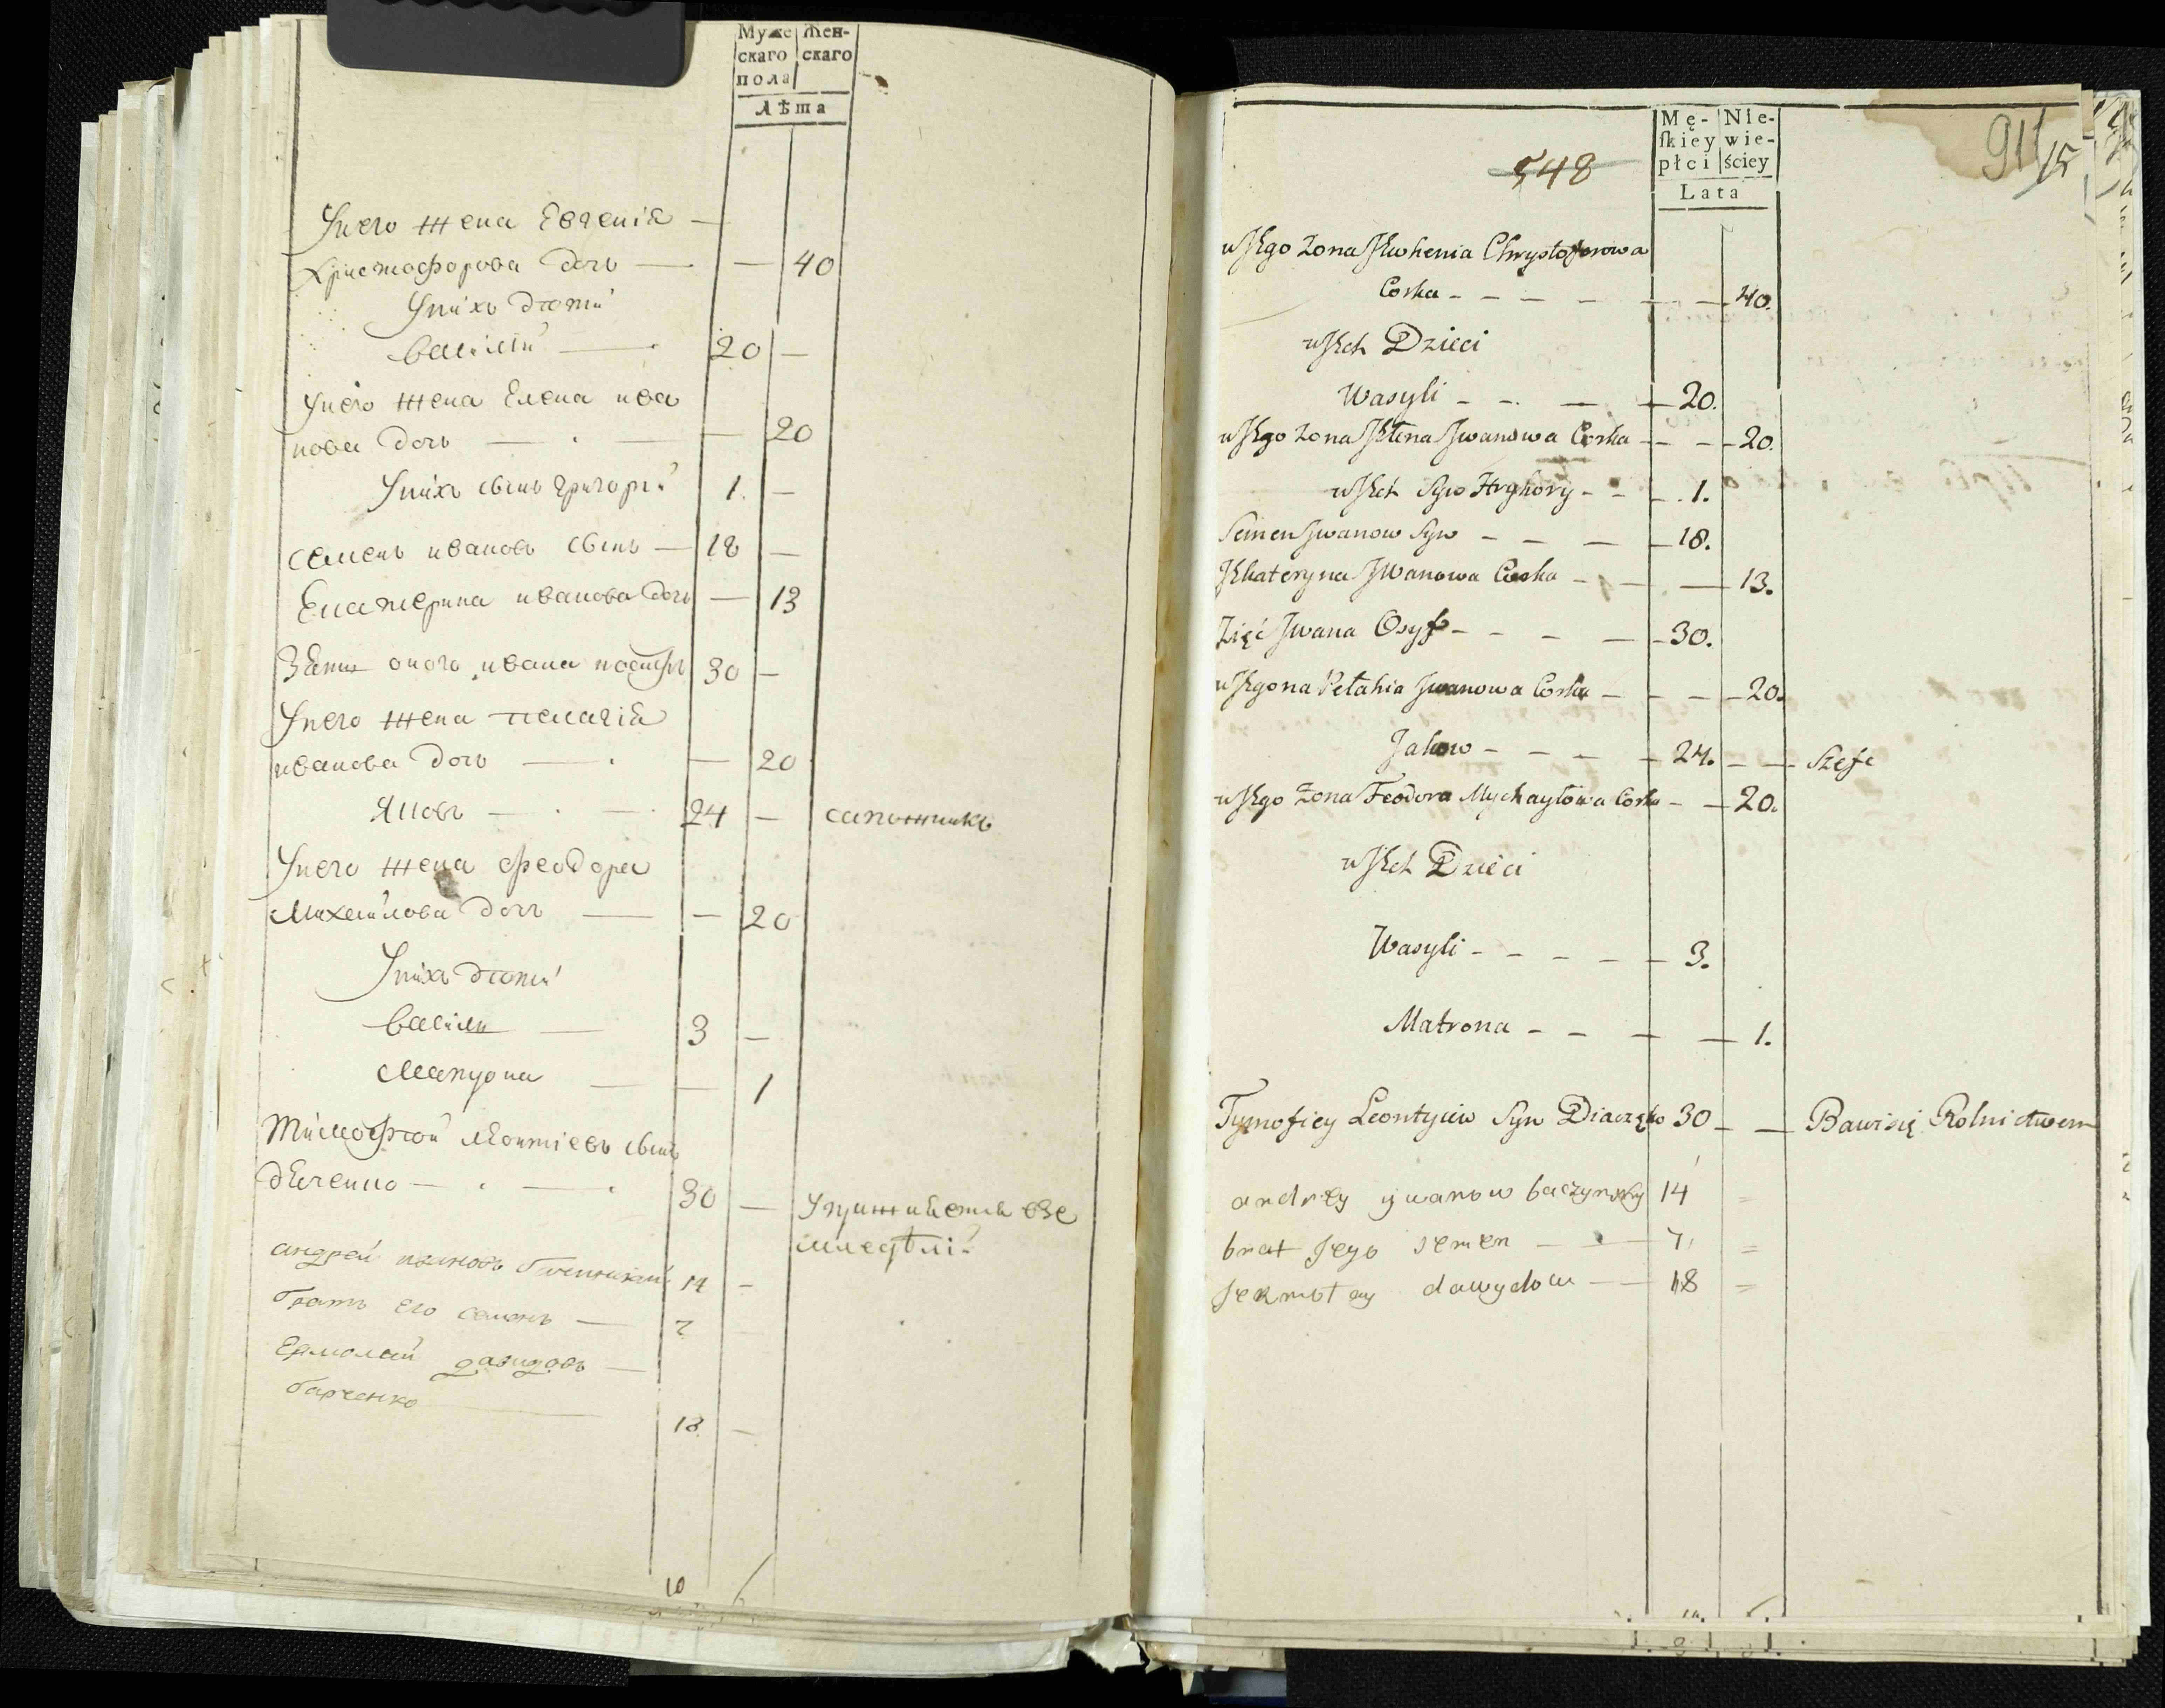 Муже
скаго
пола
Жен-
скаго
Лѣта
У него жена Евгенія —
Христофорова дочь — — 40
У нихъ дѣти
Василій — 20 —
У него жена Елена ива
нова дочь — — 20
У нихъ сынъ Григорій 1. —
Семенъ ивановъ сынъ — 18 —
Екатерина иванова дочь — 13
Зять оного ивана иосифъ 30 —
У него жена пелагія
иванова дочь — — 20
Яковъ — 24 — сапожникъ
У него жена феодора
Михайлова дочь — — 20
У нихъ дѣти
Василій — 3 —
Матрона — — 1
Тимофѣй Леонтіевъ сынъ
дяченко — 30 — Упражняется въ зе
мледѣліи
андрей ивановъ 14 —
братъ его семенъ — 7
Ермолай давидовъ —
барченко 18 —
10 6
Mę-
skiey
płci
Nie-
wie-
ściey
Lata
548
91
15
u Jego Zona Jewhenia Chrystoforowa
Corka - - - - 40.
u Jch Dzieci
Wasyli - - - 20.
u Jego Zona Jelena Jwanowa Corka - - - 20.
u Jch Syn Hryhory - - - 1.
Semen Jwanow Syn - - - 18.
Jekateryna Jwanowa Corka - - - 13.
Zięć Jwana Osyf - - - 30.
u Jego na Pelahia Jwanowa Corka - - - 20.
Jakow - - - 24. - - Szefc
u Jego Zona Feodora Mychayłowa Corka - - 20.
u Jch Dzieci
Wasyli - - - - 3.
Matrona - - - - 1.
Tymofiey Leontyiew Syn Diaczęko 30 - - Bawi się Rolnictwem
andrey ywanow baczynsky 14 =
brat Jego semen — 7, =
Jermołay dawydow — 18 =